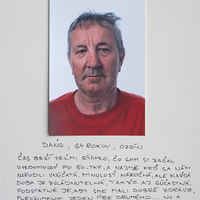 DAŇO, 64 ROKOV, OZDÍN
ČAS BEŽÍ VEĽMI RÝCHLO, ČO SOM SI ZAČAL
UVEDOMOVAŤ PO 50-TKE, A NAJMÄ, KEĎ SA NÁM
NARODILI VNÚČATÁ. MINULOSŤ NÁROČNÁ, ALE KAŽDÁ
DOBA JE ZVLÁDNUTEĽNÁ, TAKŽE AJ SÚČASTNÁ.
PODSTATNÉ JE, ABY SME MALI DOBRÉ ZDRAVIE,
POROZUMENIE JEDEN PRE DRUHÉHO... NO A